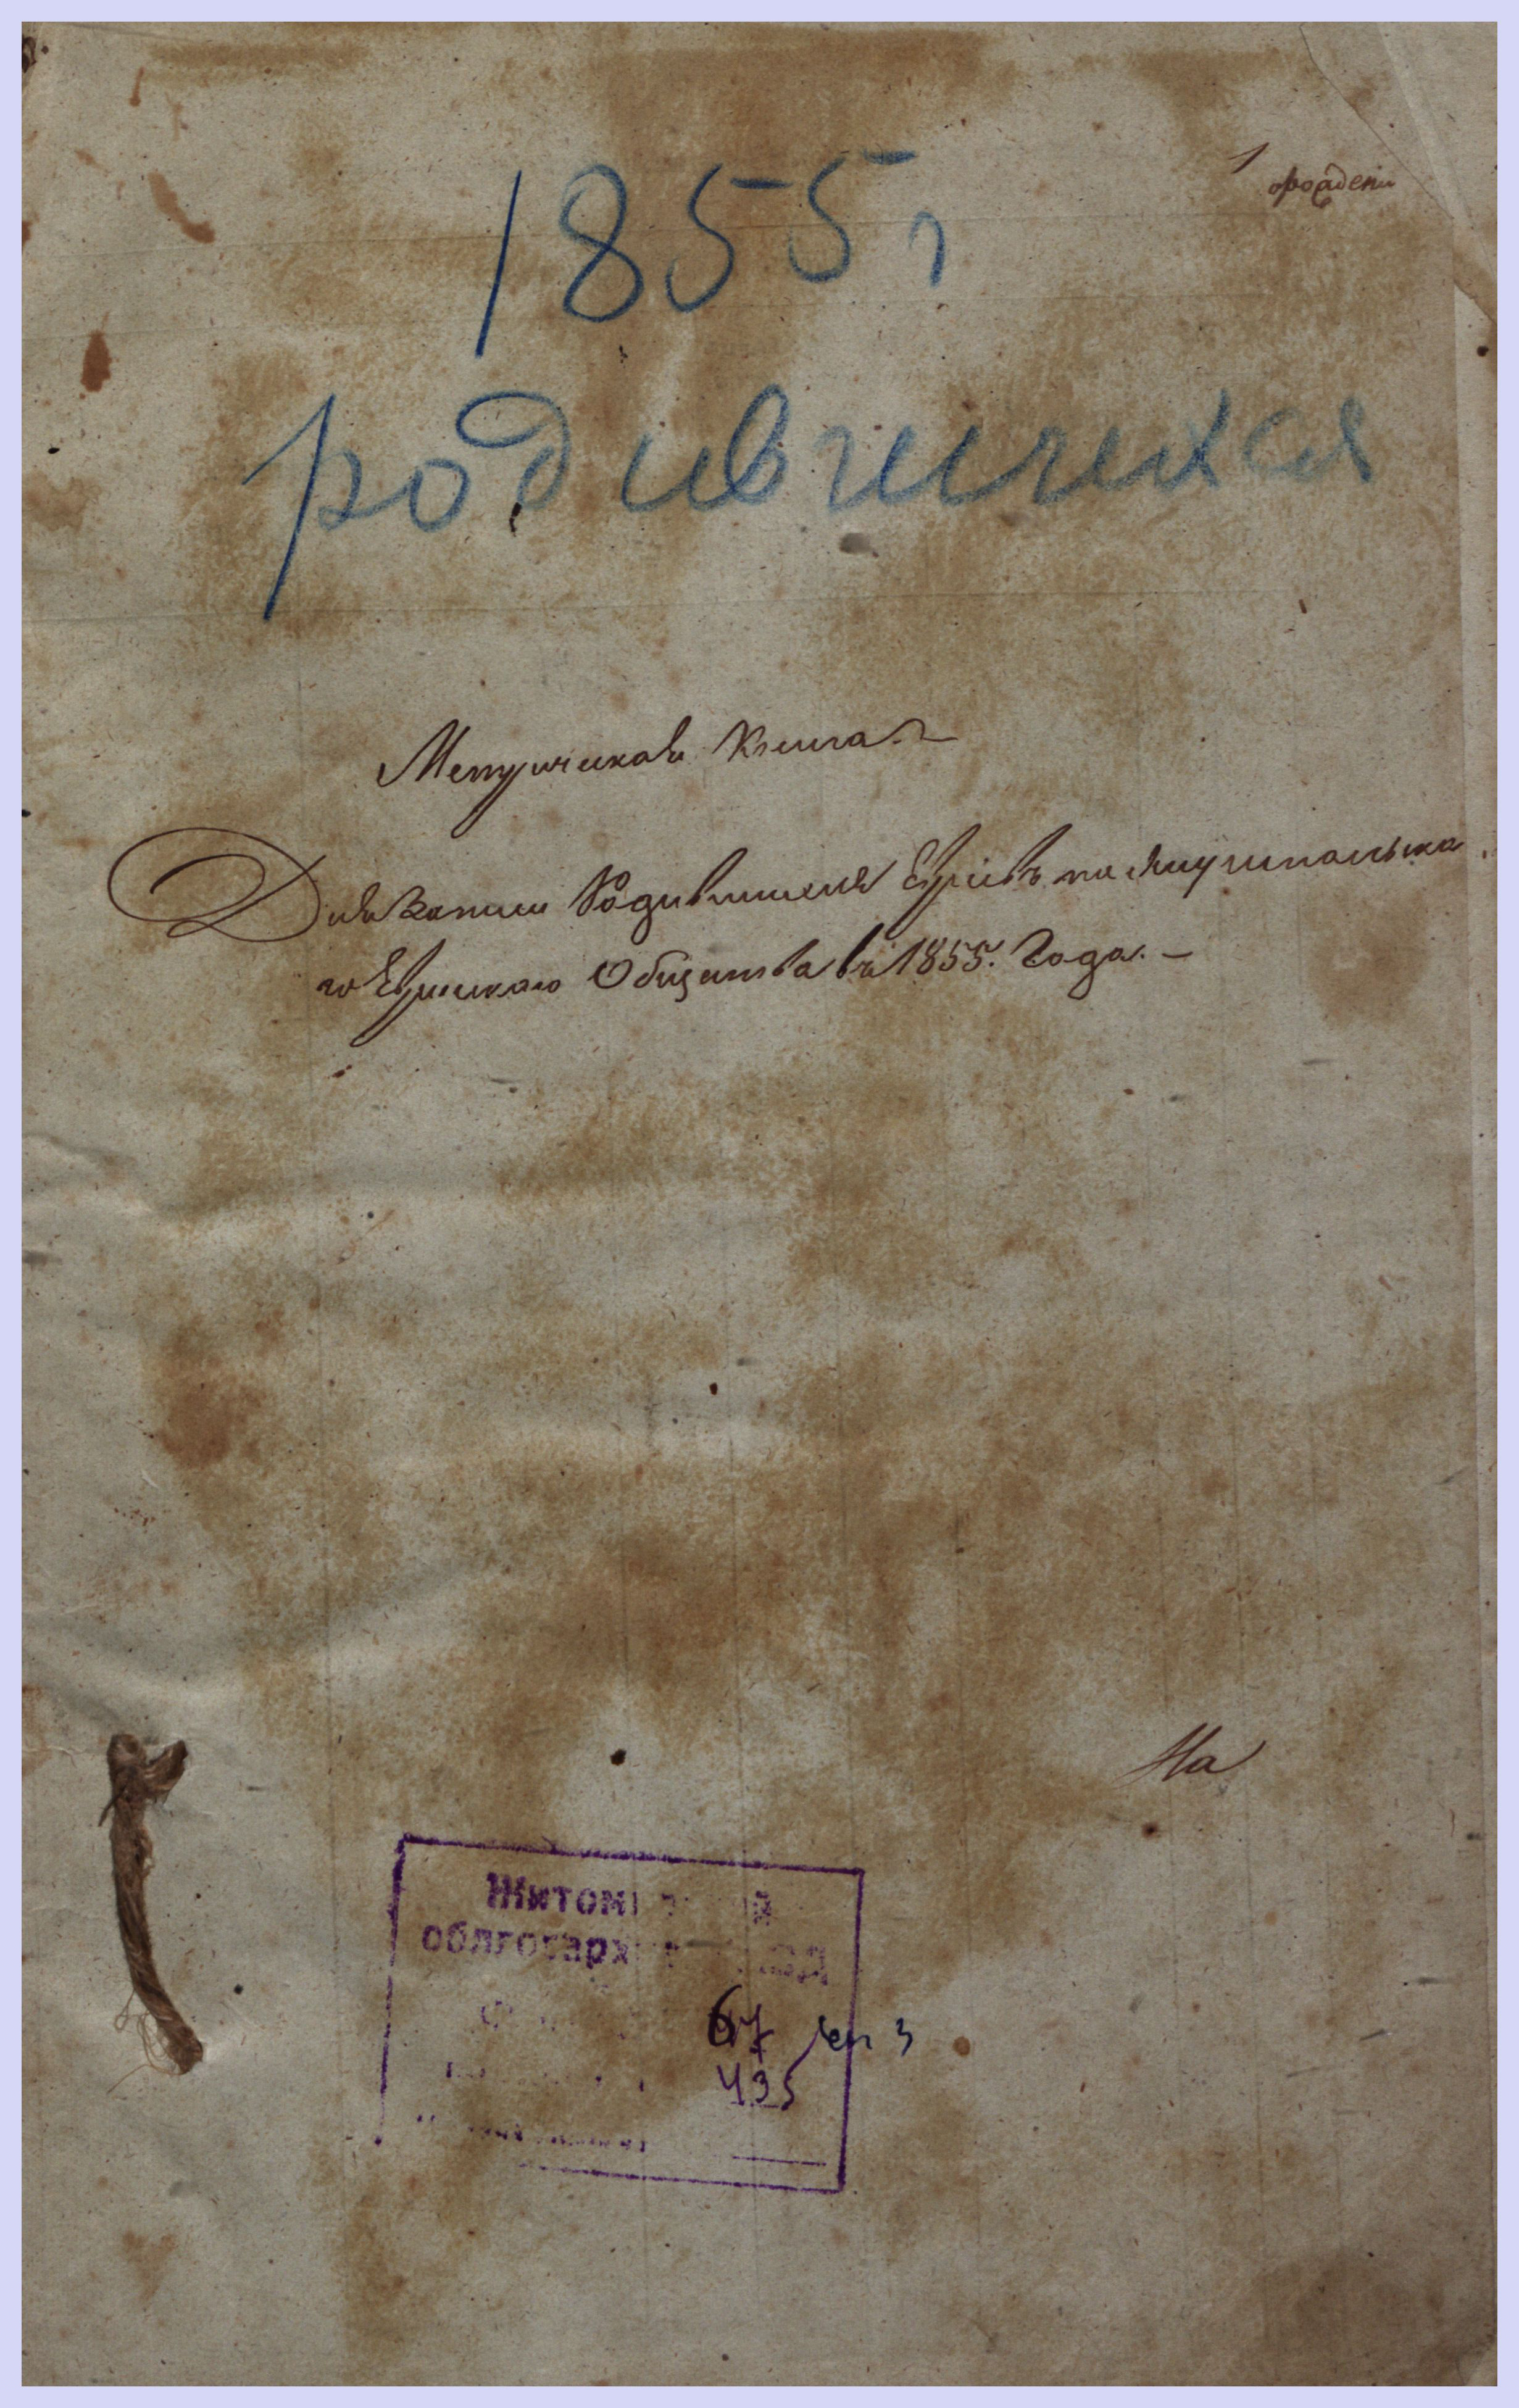 1
орождени
1855 г
родившихся
Метрическая Книга.
Для Записи Родившихся Евреевъ по Янушпольска
го Еврейскаго Общества въ 1855. Года. —
На
Житом й
облгосарх
67 оп 3
435